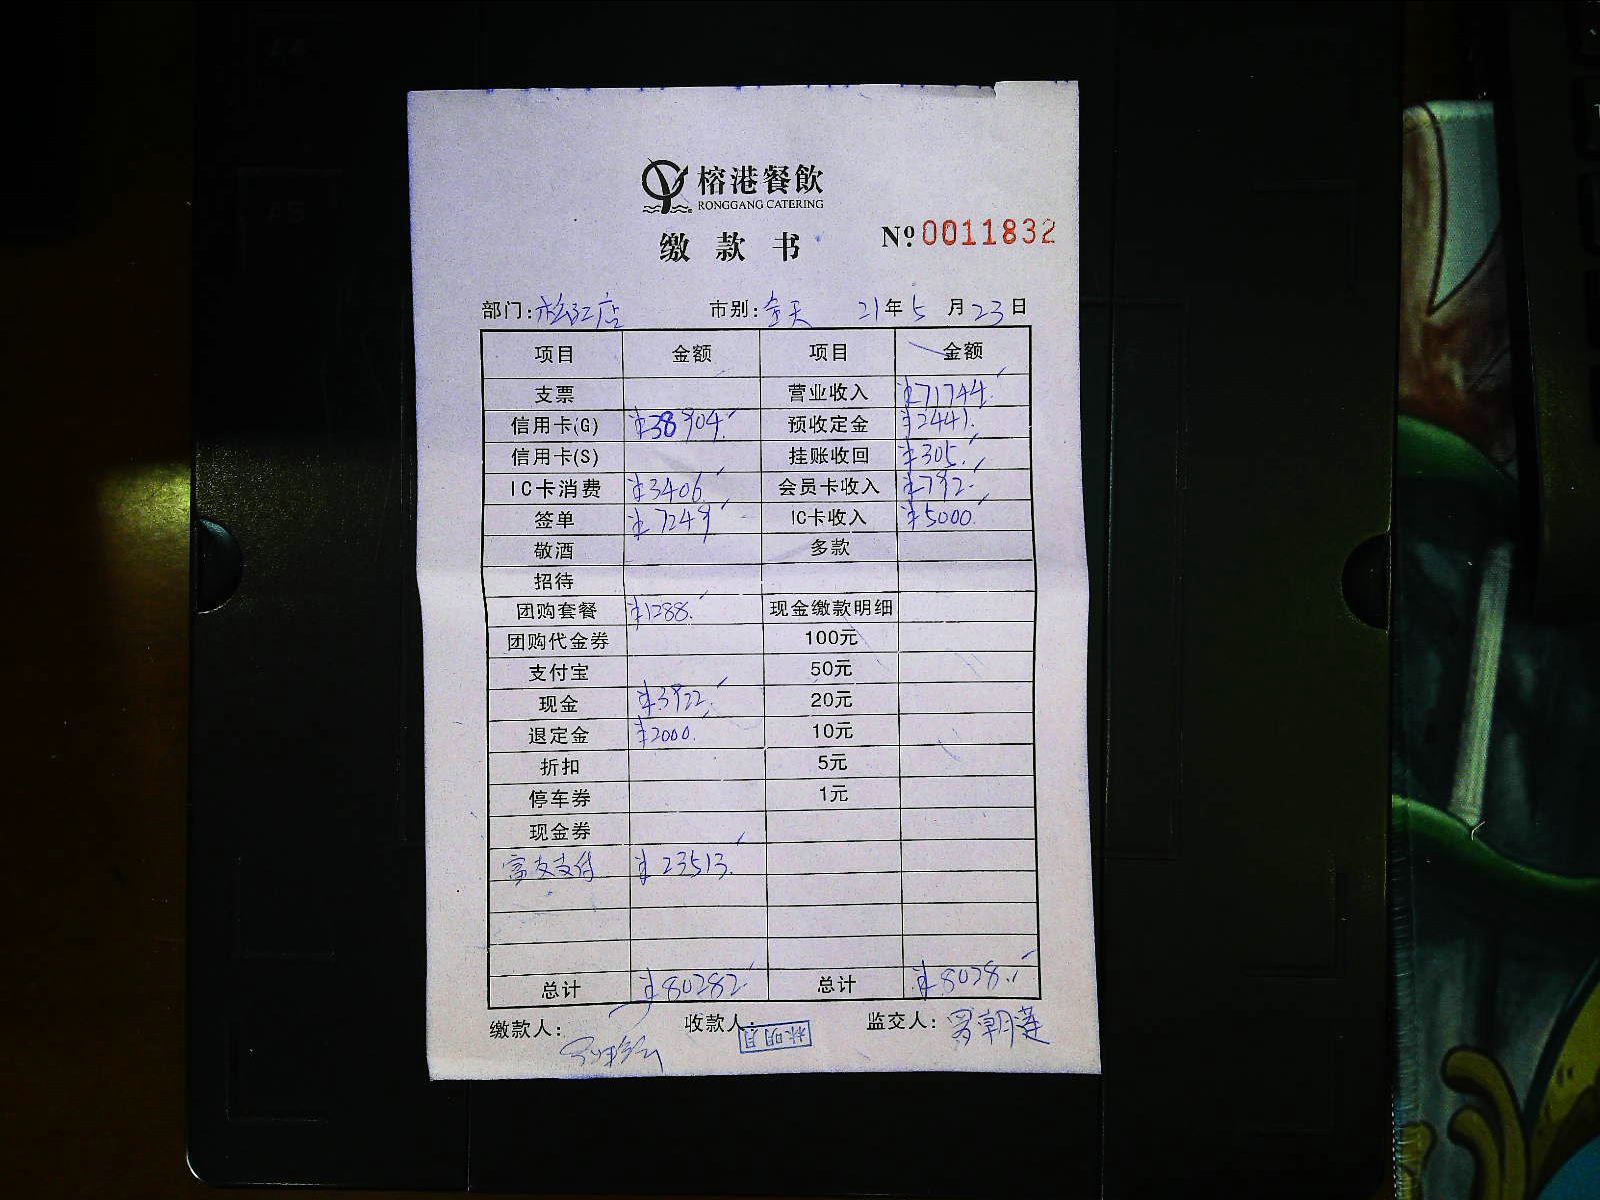 榕港餐飲
RONGGANG CATERING
缴款书 № 0011832
部门: 松江店 市别: 全天 21年5月23日
项目 金额 项目 金额
支票 营业收入 ¥71744.
信用卡(G) ¥38904. 预收定金 ¥2441.
信用卡(S) 挂账收回 ¥305.
IC卡消费 ¥3406. 会员卡收入 ¥792.
签单 ¥7249 IC卡收入 ¥5000.
敬酒 多款
招待
团购套餐 ¥1288. 现金缴款明细
团购代金券 100元
支付宝 50元
现金 ¥3922. 20元
退定金 ¥2000. 10元
折扣 5元
停车券 1元
现金券
支付 ¥23513.
总计 ¥80282. 总计
缴款人: 收款人: 林明月 监交人: 罗朝莲